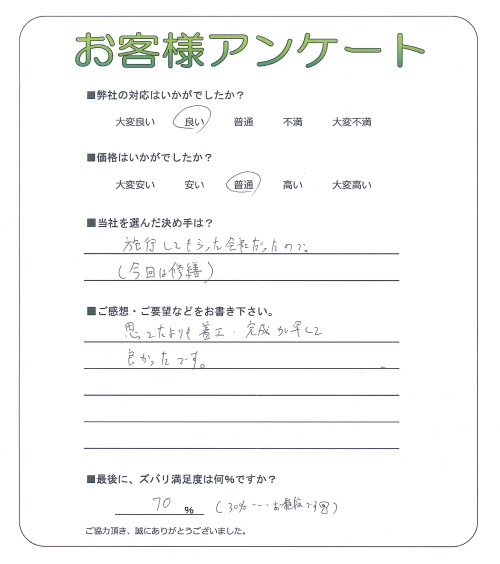 お客様アンケート
■弊社の対応はいかがでしたか？
大変良い 良い 普通 不満 大変不満
■価格はいかがでしたか？
大変安い 安い 普通 高い 大変高い
■当社を選んだ決め手は？
施行してもらった会社だったので。
(今回は修繕)
■ご感想・ご要望などをお書き下さい。
思ってたよりも着工・完成が早くて
良かったです。
■最後に、ズバリ満足度は何%ですか？
70 % (30% ---・お値段です)
ご協力頂き、誠にありがとうございました。